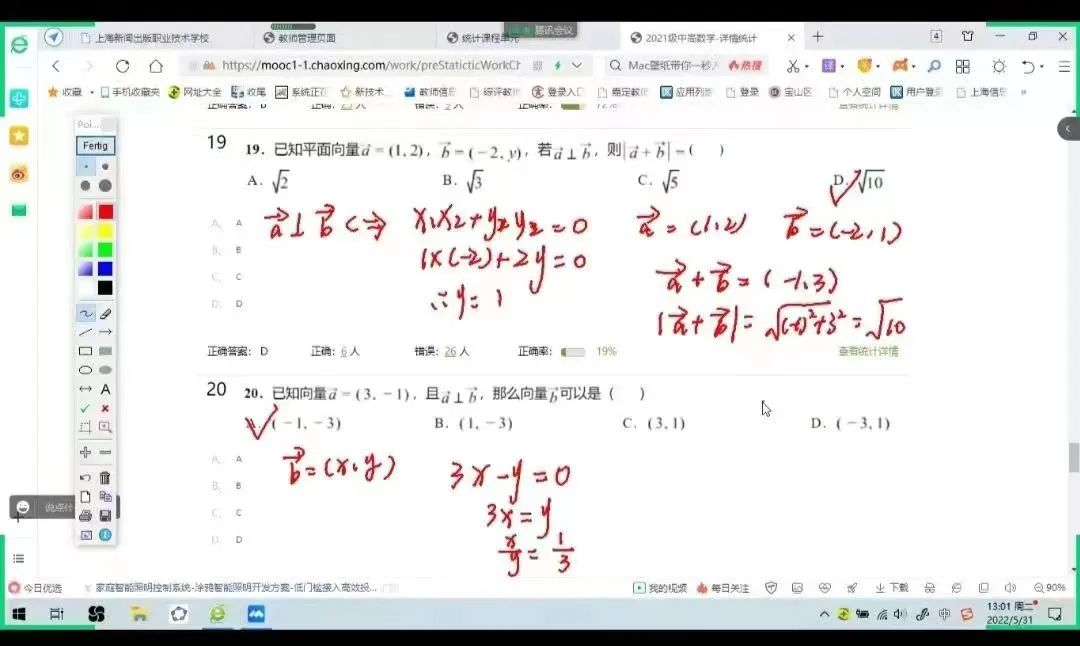 腾讯会议
上海新闻出版职业技术学校
教师管理页面
统计课程单元
2021级中高数学-详情统计
4
https://mooc1-1.chaoxing.com/work/preStatisticWorkCh
Mac壁纸带你一秒
热搜
收藏
手机收藏夹
网址大全
收尾
系统正在
新技术
教师信息
综评教师
登录入口
嘉定教师
应用列表
登录
宝山区
个人空间
用户登录
上海信息
Poi...
Fertig
19
19. 已知平面向量a⃗ = (1, 2), b⃗ = (−2, y), 若a⃗⊥b⃗, 则|a⃗ + b⃗| = ( )
A. √2 B. √3 C. √5 D. √10
a⃗⊥b⃗ <=> x₁x₂+y₂y₂=0
1×(-2)+2y=0
∴y=1
a⃗=(1,2) b⃗=(-2,1)
a⃗+b⃗=(-1,3)
|a⃗+b⃗|=√(-1)²+3²=√10
A. A
B. B
C. C
D. D
正确答案: D 正确: 6人 错误: 26人 正确率: 19% 查看统计详情
20
20. 已知向量a⃗ = (3, −1), 且a⃗⊥b⃗, 那么向量b⃗可以是 ( )
(−1, −3) B. (1, −3) C. (3, 1) D. (−3, 1)
b⃗=(x,y)
3x-y=0
3x=y
x/y=1/3
A. A
B. B
C. C
D. D
说点什
今日优选
家庭智能照明控制系统-涂鸦智能照明开发方案-低门槛接入高效投...
我的视频
每日关注
下载
90%
中
13:01 周二
2022/5/31